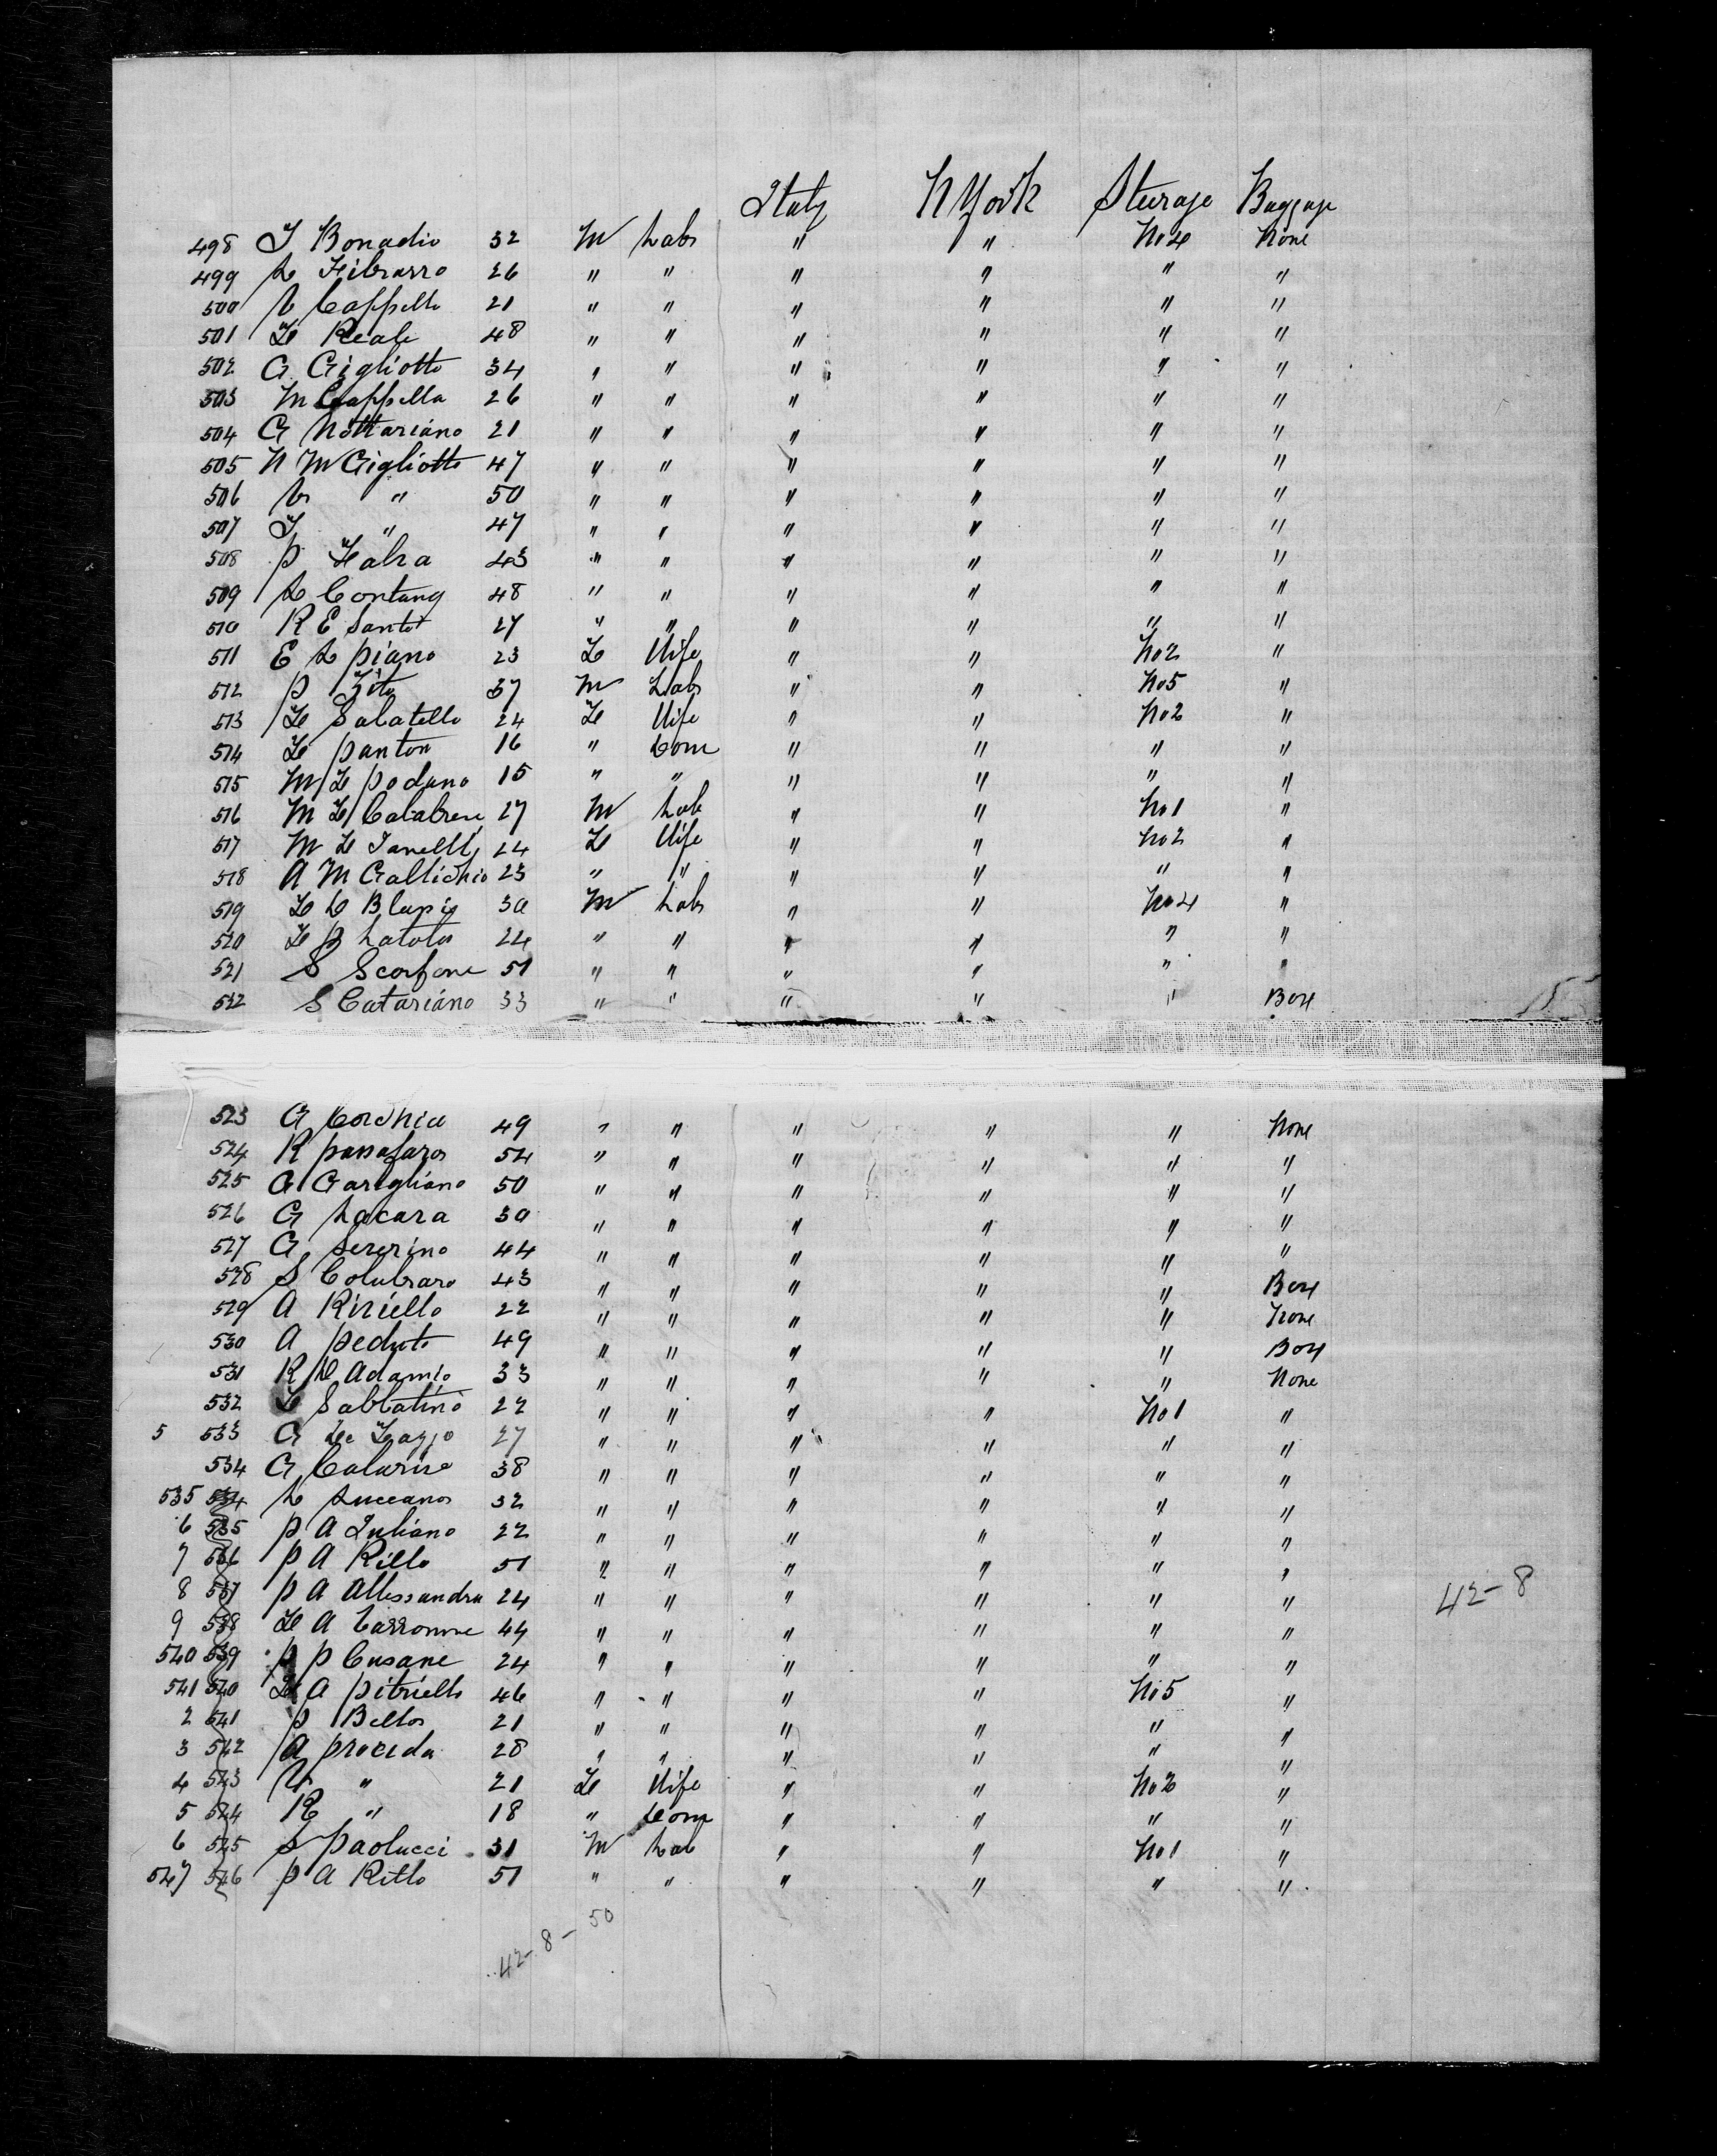 Italy N York Steerage Baggage
498 J Bonadio 32 M Labr " " No 4 None
499 L Fibrarro 26 " " " " " "
500 V Cappello 21 " " " " " "
501 F Reale 48 " " " " " "
502 G Gigliotto 34 " " " " " "
503 M Cappella 26 " " " " " "
504 G Nottariano 21 " " " " " "
505 N M Gigliotto 47 " " " " " "
506 V " 50 " " " " " "
507 J " 47 " " " " " "
508 P Falra 43 " " " " " "
509 L Contang 48 " " " " " "
510 R E Santo 27 " " " " " "
511 E L Piano 23 F Wife " " No 2 "
512 P Zito 37 M Labr " " No 5 "
513 F Salatello 24 F Wife " " No 2 "
514 F Panton 16 " Dom " " " "
515 M F Podano 15 " " " " " "
516 M F Calabrese 27 M Lab " " No 1 "
517 M F Janelly 24 F Wife " " No 2 "
518 A M Gallichio 23 " " " " " "
519 F D Blapis 30 M Labr " " No 4 "
520 F P Latolo 24 " " " " " "
521 S Scorfone 51 " " " " " "
522 S Catariano 33 " " " " " Box
523 G Corchia 49 " " " " " None
524 R Panafaro 54 " " " " " "
525 G Garigliano 50 " " " " " "
526 G Lacara 30 " " " " " "
527 G Sererino 44 " " " " " "
528 S Colubraro 43 " " " " " Box
529 A Ririello 22 " " " " " None
530 A Peduto 49 " " " " " Box
531 R D Adamio 33 " " " " " None
532 F Sabbatino 22 " " " " No 1 "
5 533 G De Fazzo 27 " " " " " "
534 G Calarise 38 " " " " " "
535 534 L Luccano 32 " " " " " "
6 535 P A Iuliano 22 " " " " " "
7 536 P A Rillo 51 " " " " " "
8 537 P A Allessandra 24 " " " " " " 42-8
9 538 F A Carronne 44 " " " " " "
540 539 P P Cusane 24 " " " " " "
541 540 F A Pitriello 46 " " " " No 5 "
2 541 P Bello 21 " " " " " "
3 542 A Procida 28 " " " " " "
4 543 V " 21 F Wife " " No 2 "
5 544 R " 18 " Dom " " " "
6 545 S Paolucci 31 M Lab " " No 1 "
547 546 P A Rillo 51 " " " " " "
42-8-50